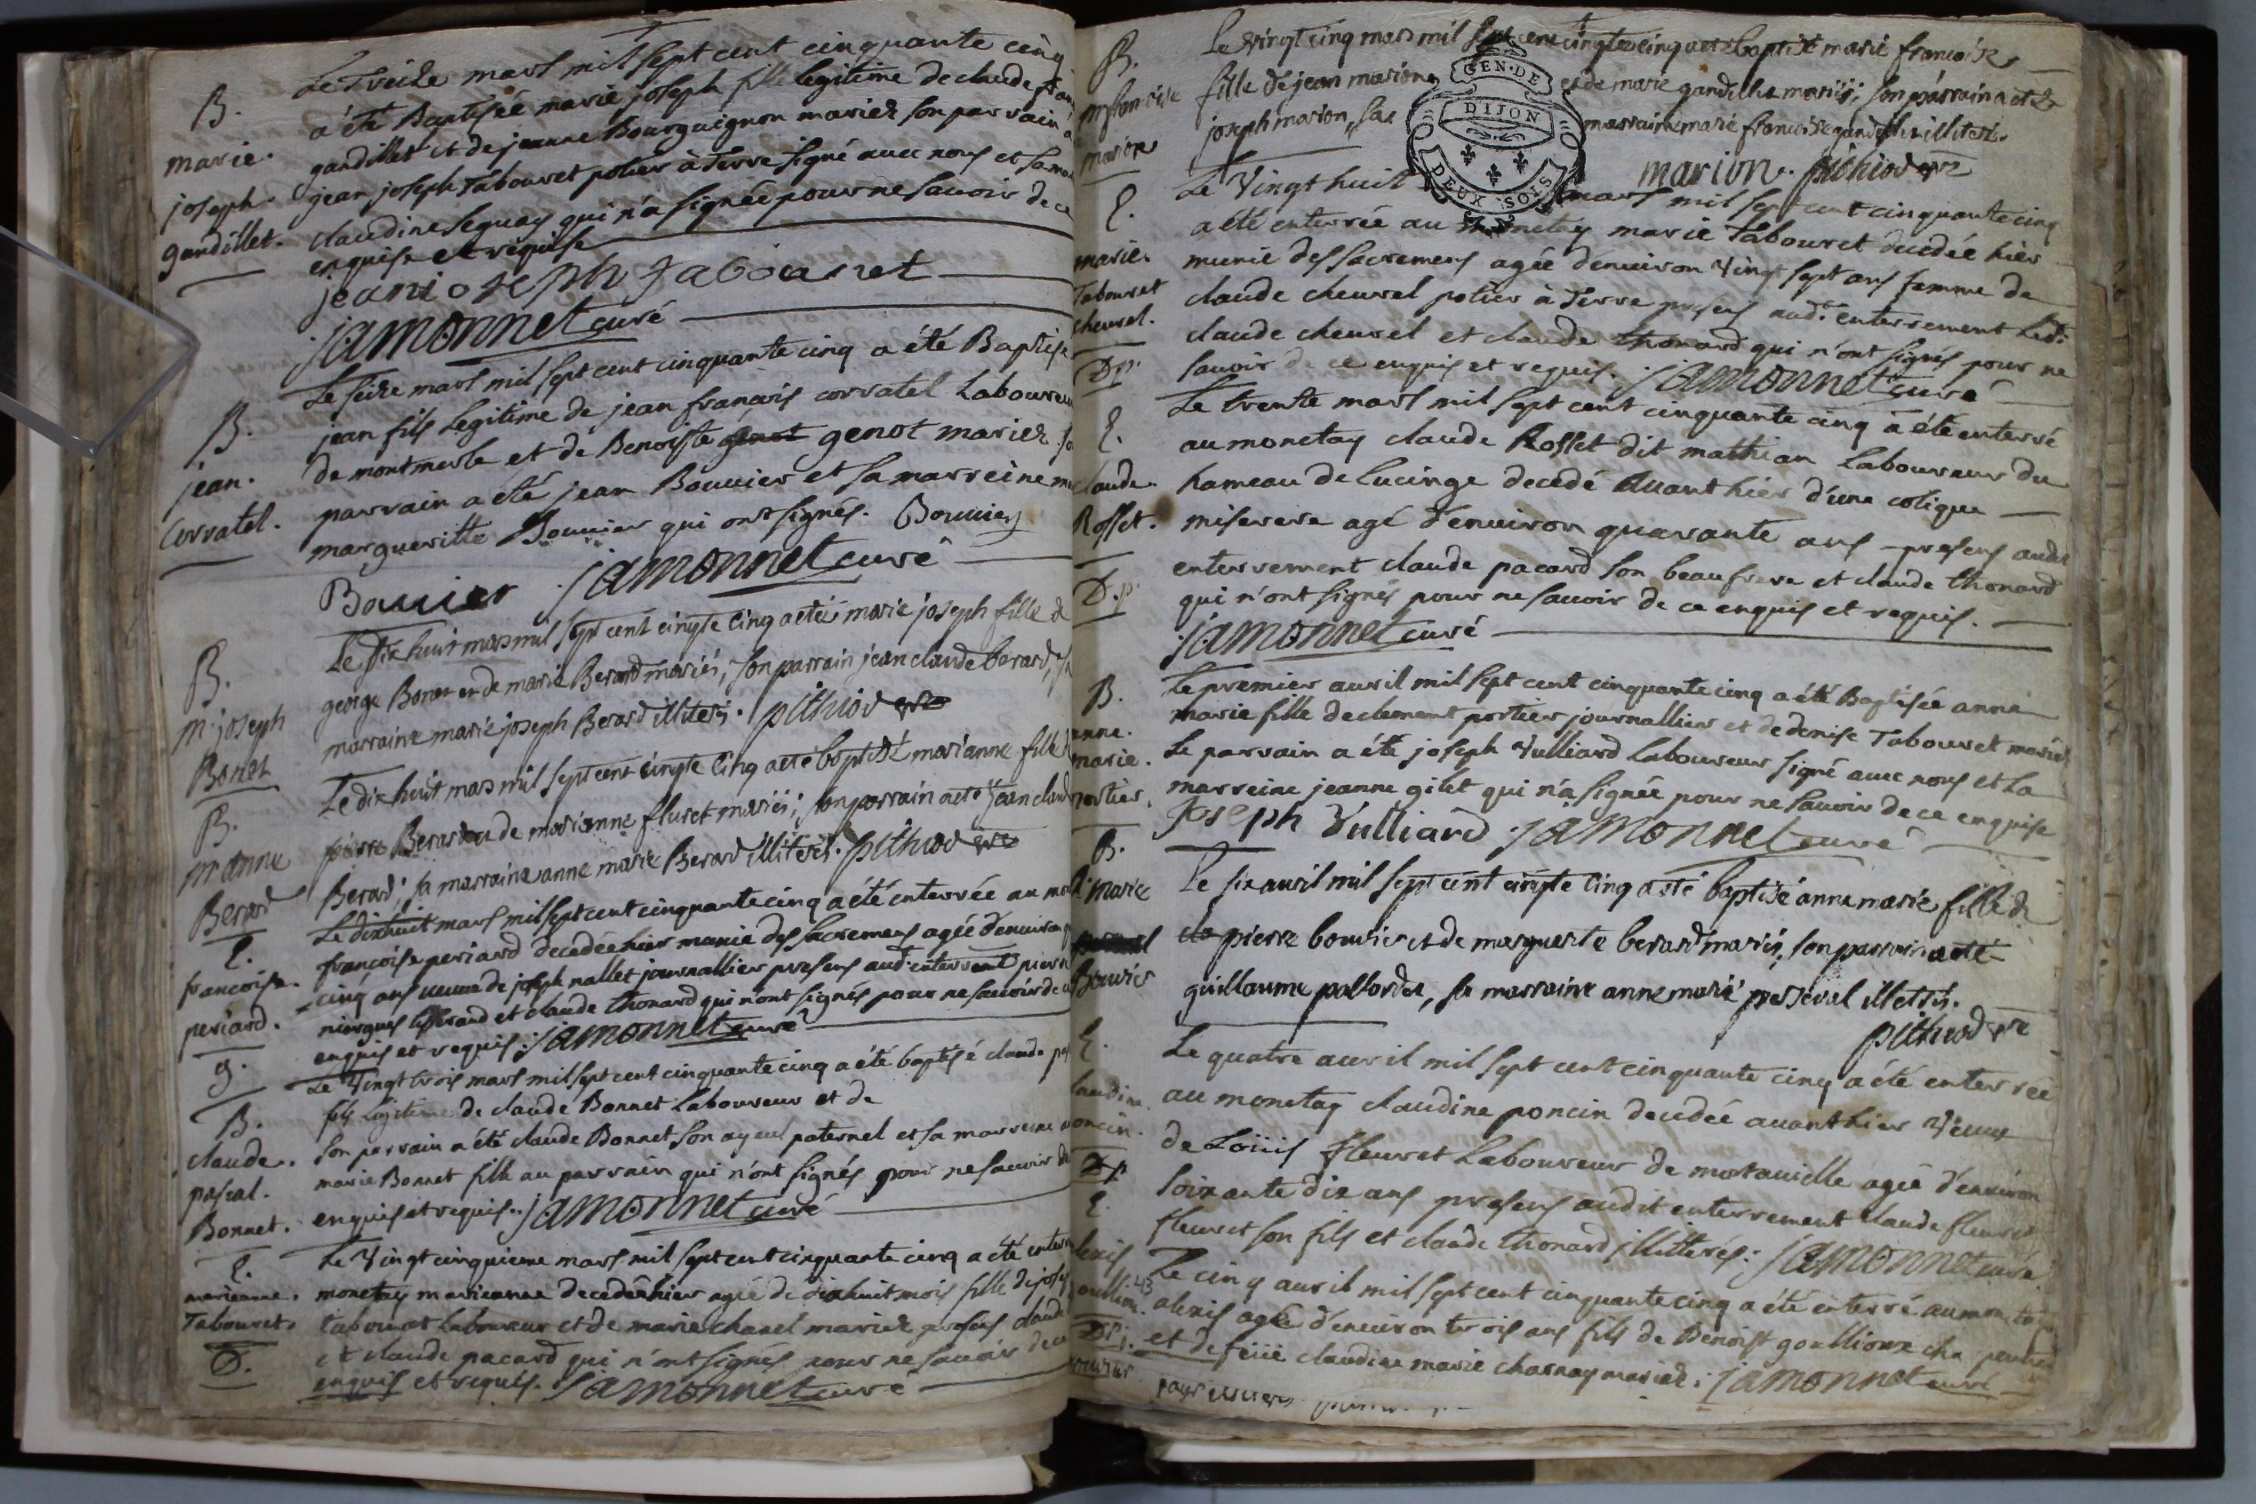 B.
marie.
joseph.
gandillet.
Le Treize mars mil sept cent cinquante cinq
a été Baptisée marie joseph fille legitime de claude
gandillet et de jeanne Bourguignon mariez son parrain a
jean joseph Tabouret potier à Terre signé avec nous et sa
claudine Seguay qui n'a signée pour ne savoir de ce
enquise et requise
jean joseph Tabouret
jamonnet curé
B.
jean.
Corratel.
Le Seize mars mil sept cent cinquante cinq a été Baptise
jean fils Legitime de jean francois corratel Laboureur
de montmerle et de Benoiste genot mariez
parrain a été jean Bouvier et sa marreine
margueritte Bouvier qui ont signés. Bouvier
Bouvier jamonnet curé
B.
m. joseph
Bonet
Le dix huit mars mil sept cent cinqte cinq a eté marie joseph fille de
george Bonet et de marie Berard mariés, son parrain jean claude berard,
marraine marie joseph Berard illiterés. pithiod
B.
m. anne
Berard
Le dix huit mars mil sept cent cinqte cinq a eté baptisé marianne fille
pierre Berard et de marianne fluret mariés; son parrain a eté jean claude
Berard; sa marraine anne marie Berard illiterés. pithiod
E.
francoise.
periard.
g.
Le dixhuit mars mil sept cent cinquante cinq a été enterrée au
françoise periard decedée hier munie des sacremens agée d'environ
cinq ans veuve de joseph nallet journallier presens audt. enterrement pierre
et claude Thonard qui n'ont signés pour ne savoir de ce
enquis et requis. jamonnet curé
B.
claude.
pascal.
Bonnet.
Le Vingt trois mars mil sept cent cinquante cinq a été baptisé claude
fils Légitime de claude Bonnet Laboureur et de
son parrain a été claude Bonnet son ayeul paternel et sa marreine
marie Bonnet fille au parrain qui n'ont signés pour ne savoir de
enquis et requis. jamonnet curé
E.
marianne.
Tabouret.
D.
Le Vingt cinquieme mars mil sept cent cinquante cinq a été
monetay marianne decedée hier agée de dixhuit mois fille de
tabouret Laboureur et de marie chanel mariez presens claude
et claude pacard qui n'ont signés pour ne savoir de ce
enquis et requis. jamonnet curé
B.
m. francoise
marion
Le vingt cinq mars mil sept cent cinqte cinq a eté baptisé marie francoise
fille de jean marion et de marie gandillet mariés; son parrain a eté
joseph marion, sa marraine marie francoise gandillet illiteré.
marion. pithiod
GEN. DE
DIJON
DEUX SOLS
E.
marie.
Tabouret
cheurel.
D.p.
Le Vingt huit mars mil sept cent cinquante cinq
a été enterrée au monetay marie Tabouret decedée hier
munie des sacremens agée d'environ Vingt sept ans femme de
claude cheurel potier à Terre presens audt. enterrement Ledt.
claude cheurel et claude Thonard qui n'ont signés pour ne
savoir de ce enquis et requis. jamonnet curé
E.
claude.
Rosset.
D.p.
Le trente mars mil sept cent cinquante cinq a été enterré
au monetay claude Rosset dit mathian Laboureur du
hameau de Lucinge decedé avant hier d'une colique
miserere agé d'environ quarante ans presens audt
enterrement claude pacard son beaufrere et claude Thonard
qui n'ont signés pour ne savoir de ce enquis et requis.
jamonnet curé
B.
anne.
marie.
portier.
Le premier avril mil sept cent cinquante cinq a été Baptisée anne
marie fille de clement portier journallier et de denise Tabouret mariez
Le parrain a été joseph Vulliard Laboureur signé avec nous et La
marreine jeanne gilet qui n'a signée pour ne savoir de ce enquise
Joseph Vulliard jamonnet curé
B.
marie
Bouvier
Le six avril mil sept cent cinqte cinq a eté baptisé anne marie fille de
pierre bouvier et de marguerite berard mariés, son parrain a eté
guillaume pallordet, sa marraine anne marie perseval illetrés.
pithiod
E.
laudine.
oncin.
D.p
Le quatre avril mil sept cent cinquante cinq a été enterrée
au monetay claudine poncin decedée avant hier Veuve
de Loüis fleuret Laboureur de mortavielle agée d'environ
soixante dix ans presens audit enterrement claude fleuret
fleuret son fils et claude thonard illitterés. jamonnet curé
E.
lexis
oullion.
Le cinq avril mil sept cent cinquante cinq a été enterré au monetay
alexis agé d'environ trois ans fils de Benoist goullioux charpentier
et de feüe claudine marie charnay mariez. jamonnet curé